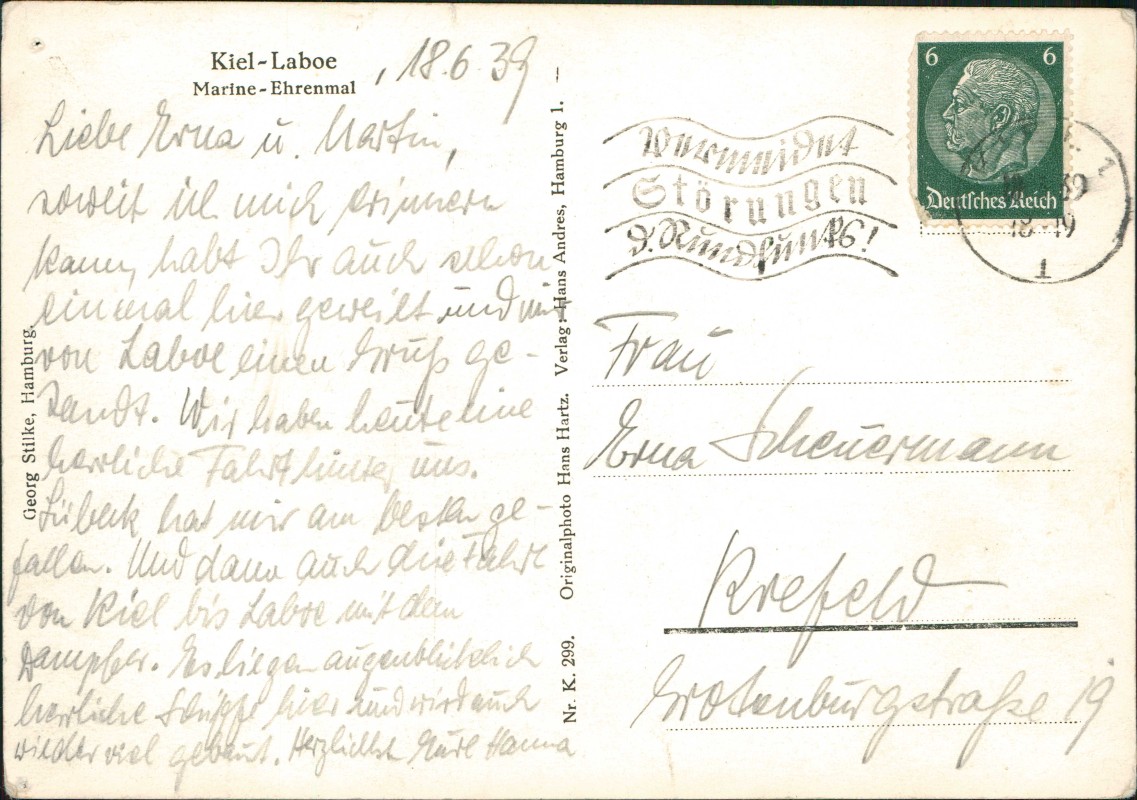 Kiel-Laboe
Marine-Ehrenmal
, 18.6.39
Liebe Erna u. Martin,
soweit ich mich erinnern
kann, habt Ihr auch schon
einmal hier geweilt und mir
von Laboe einen Gruß ge-
sandt. Wir haben heute eine
herrliche Fahrt hinter uns.
Lübeck hat mir am besten ge-
fallen. Und dann auch die Fahrt
von Kiel bis Laboe mit dem
Dampfer. Es liegen augenblicklich
herrliche Schiffe hier und wird auch
wieder viel gebaut. Herzlichst Eure Hanna
Georg Stilke, Hamburg.
Nr. K. 299. Originalphoto Hans Hartz. Verlag: Hans Andres, Hamburg 1.
Vermeidet
Störungen
d. Rundfunks!
6 6
Deutsches Reich
39
18-19
1
Frau
Erna Scheuermann
Krefeld
Grotenburgstraße 19